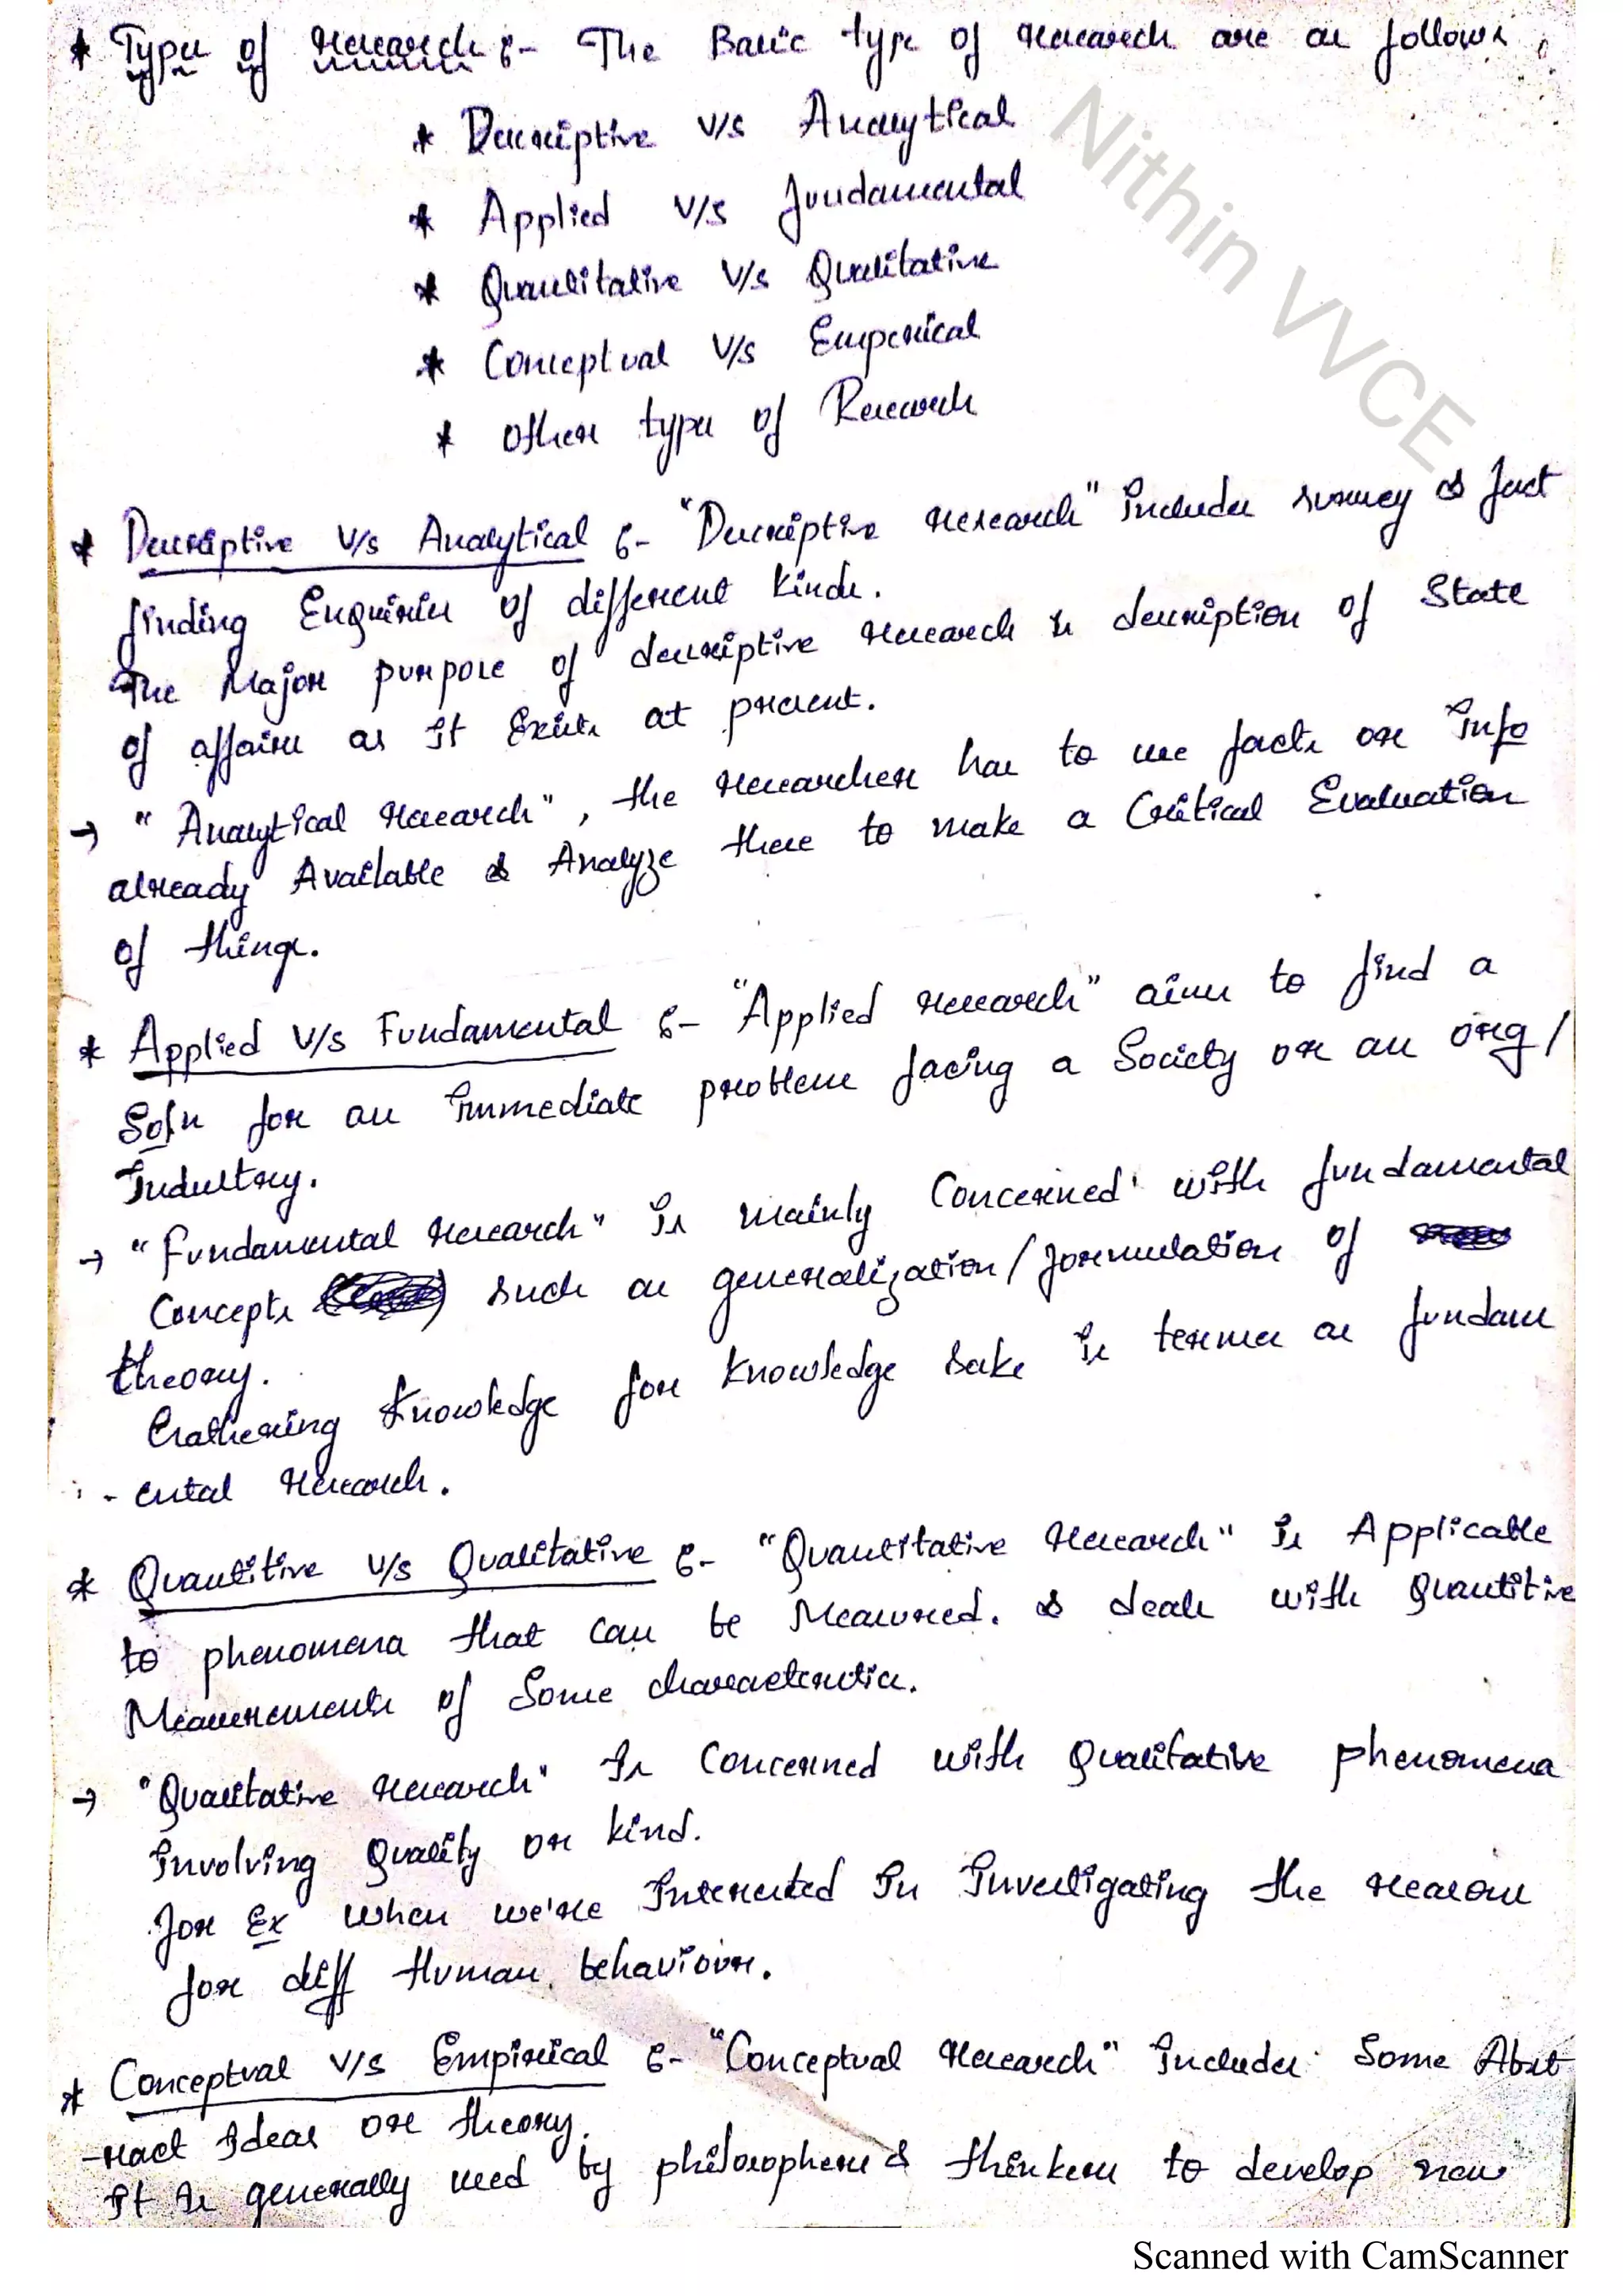 * Types of research :- The Basic type of research are as follows,
* Descriptive v/s Analytical
* Applied v/s fundamental
* Quantitative v/s Qualitative
* Conceptual v/s Emperical
* Other types of Research
* Descriptive v/s Analytical :- "Descriptive research" includes survey & fact
finding Enquiries of different kinds.
The Major purpose of descriptive research is description of State
of affairs as it Exists at present.
→ "Analytical research", the researcher has to use facts or info
already Available & Analyze these to make a Critical Evaluation
of things.
* Applied v/s Fundamental :- "Applied research" aims to find a
Soln for an immediate problem facing a Society or an org/
Industry.
→ "Fundamental research" is mainly Concerned with fundamental
Concepts such as generalization/formulation of
theory.
Gathering knowledge for knowledge sake is termes as fundam
-ental research.
* Quantitive v/s Qualitative :- "Quantitative research" is Applicable
to phenomena that can be Measured. & deals with quantitive
Measurements of Some characteristics.
→ "Qualitative research" is Concerned with qualitative phenomena
involving quality or kind.
for Ex when we're Interested in investigating the reasons
for diff Human behaviour.
* Conceptual v/s Empirical :- "Conceptual research" includes Some Abst
-ract Ideas or theory.
It is generally used by philosophers & thinkers to develop new
Nithin VVCE
Scanned with CamScanner